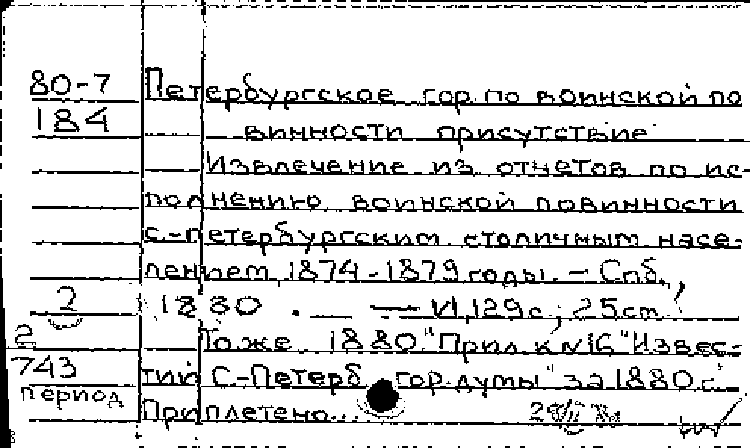 80-7 Петербургское гор. по воинской по
184 винности присутствие
Извлечение из отчетов по ис-
полнению воинской повинности
С.-петербургским столичным насе-
лением, 1874-1879 годы. - Спб.,
2 1880. — VI, 129с.; 25см.
То же. 1880. "Прил. к №16 "Извес-
2
743 тий С-Петерб. гор. думы" за 1880 г."
период Приплетено...